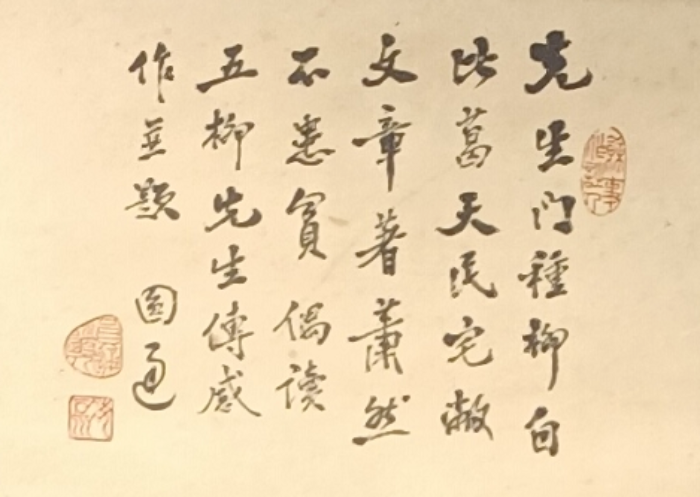 先生門種柳自
比葛天民宅敝
文章著蕭然
不患貧偶讀
五柳先生傳感
作並題
圓通